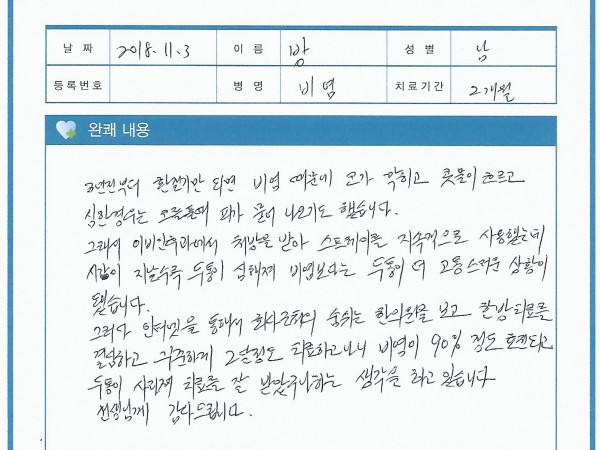 날 짜 2018.11.3 이 름 방 성 별 남
등록번호 병 명 비염 치료기간 2개월
완쾌 내용
3년전부터 환절기만 되면 비염 때문에 코가 막히고 콧물이 흐르고
심한경우는 코풀때 피가 묻어 나오기도 했습니다.
그래서 이비인후과에서 처방을 받아 스프레이를 지속적으로 사용했는데
시간이 지날수록 두통이 심해져 비염보다는 두통이 더 고통스러운 상황이
됐습니다.
그러다 인터넷을 통해서 회사근처의 숨쉬는 한의원을 보고 한방치료를
결심하고 꾸준하게 2달정도 치료하고나니 비염이 90% 정도 호전되고
두통이 사라져 치료를 잘 받았구나하는 생각을 하고 있습니다
선생님께 감사드립니다.